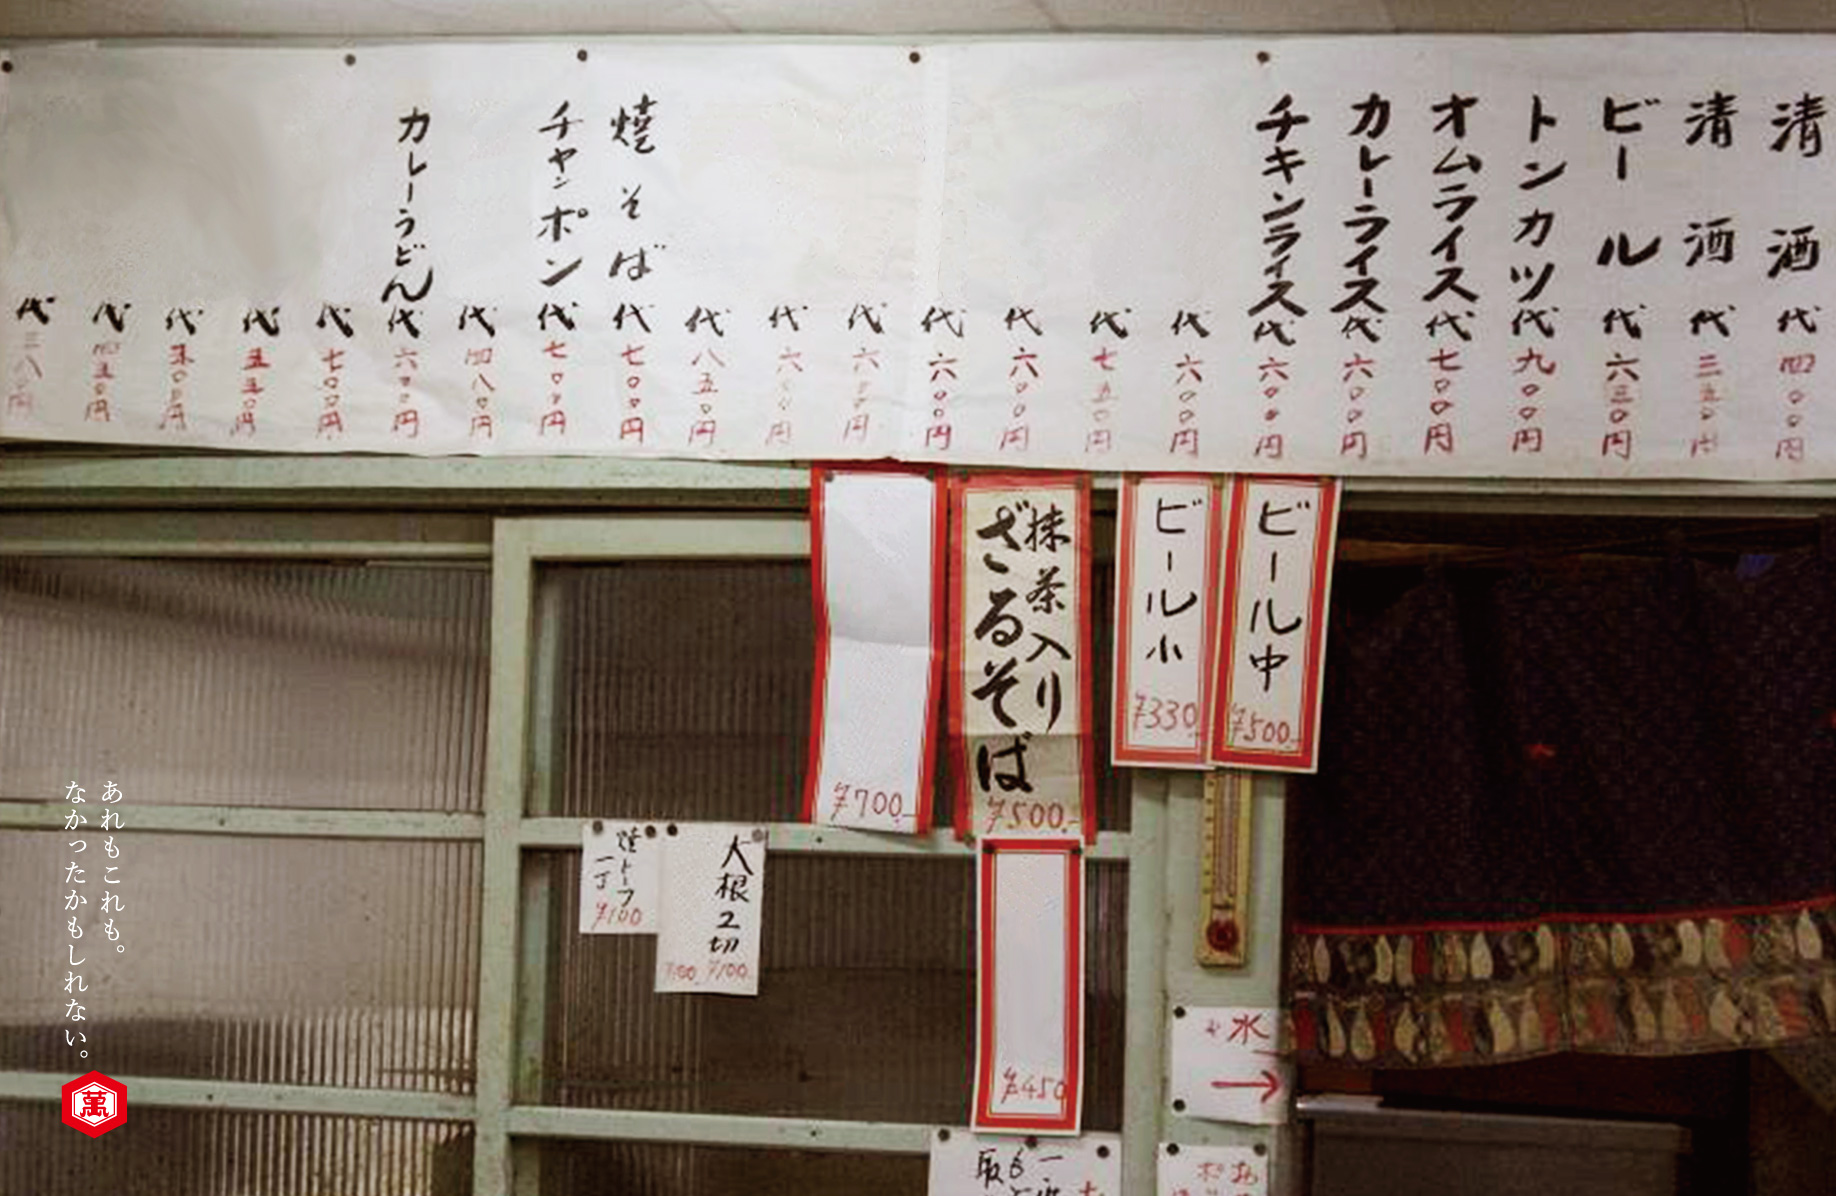 清酒代 四〇〇円
清酒代 三五〇円
ビール代 六三〇円
トンカツ代 九〇〇円
オムライス代 七〇〇円
カレーライス代 六〇〇円
チキンライス代 六〇〇円
代 六〇〇円
代 七五〇円
代 六〇〇円
代 六〇〇円
代 六〇〇円
代 六〇〇円
代 八五〇円
焼そば代 七〇〇円
チャンポン代 七〇〇円
代 四八〇円
カレーうどん代 六〇〇円
代 七〇〇円
代 五五〇円
代 五〇〇円
代 四五〇円
代 三八〇円
ビール中
¥500.-
ビール小
¥330.
抹茶入り
ざるそば
¥500.-
¥700.-
¥450
大根2切
¥100 ¥100.
焼トーフ
一丁
¥100
お水
→
あれもこれも。
なかったかもしれない。
萬